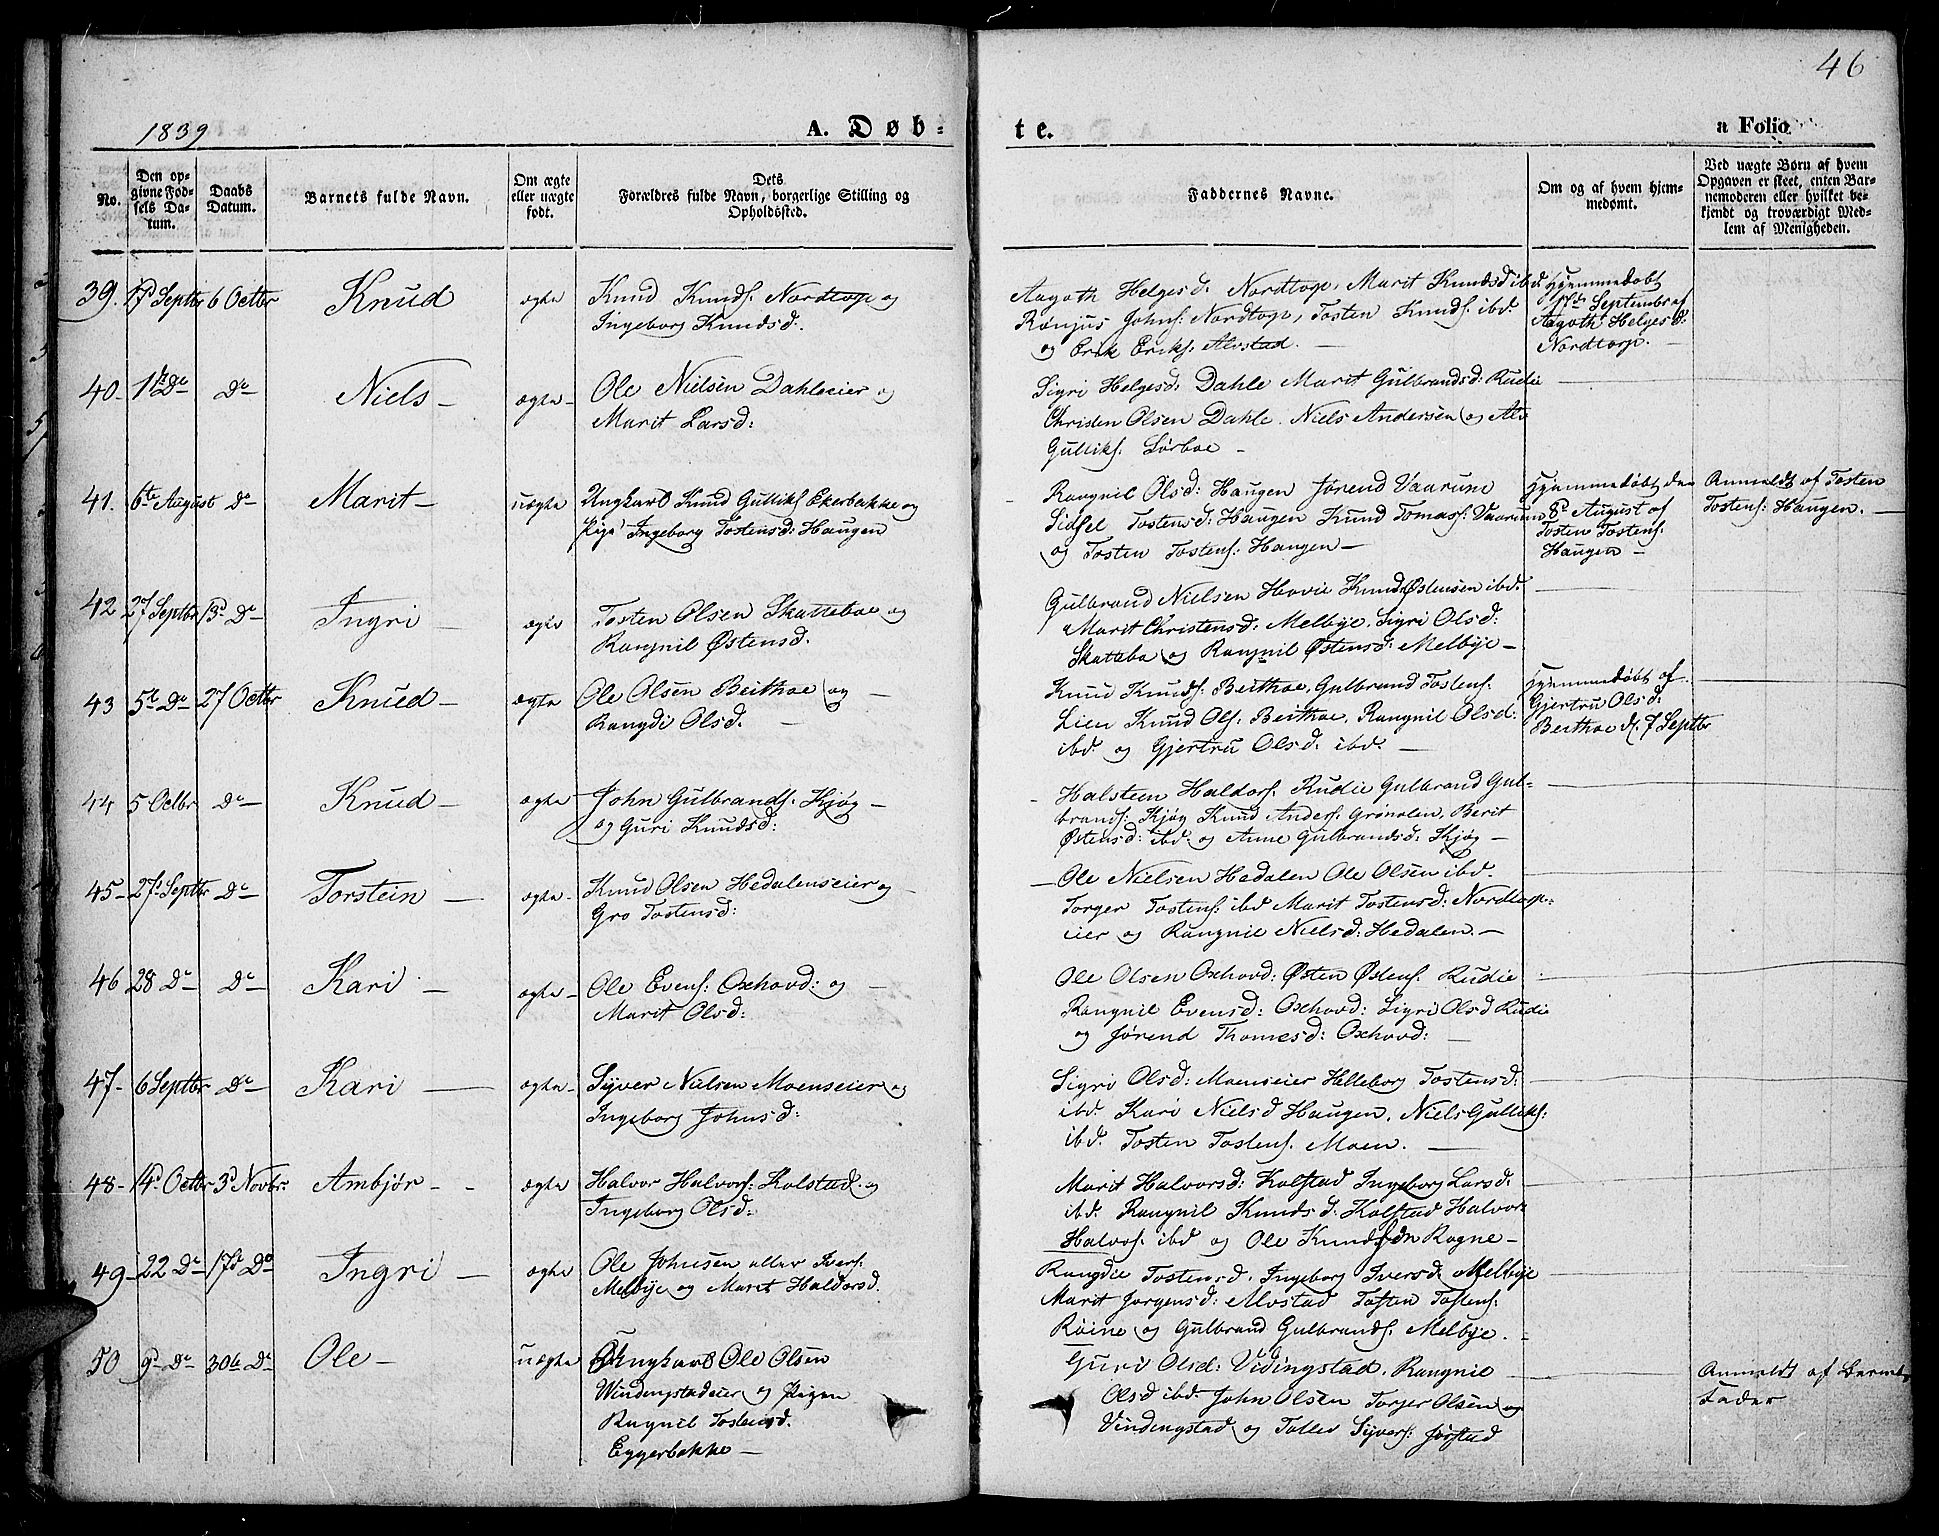 46
1839
A. Døb=
te.
a Folio
No.
Den op=
givne Fød=
sels Da=
tum.
Daabs
Datum.
Barnets fulde Navn.
Om ægte
eller uægte
født.
Dets
Forældres fulde Navn, borgerlige Stilling og
Opholdsted.
Faddernes Navne.
Om og af hvem hjem=
medømt.
Ved uægte Børn af hvem
Opgaven er skeet, enten Bar=
nemoderen eller hvilket be=
kjendt og troværdigt Med=
lem af Menigheden.
39. Septbr 6 Octbr Knud ægte
Knud Knuds: Nordtorp og
Ingeborg Knudsd.
Aagoth Helgesd: Nordtorp, Marit Knudsd ibd.
Rønjus Johns: Nordtorp, Tosten Knuds: ibd.
og Erik Eriks: Alvstad. —
Hjemmedøbt
17de Septembr af
Aagoth Helgesd:
Nordtorp. —
40 - 1de De De Niels — ægte -
Ole Nielsen Dahleseier og
Marit Larsd:
Sigri Helgesd: Dahle Marit Gulbrandsd: Rudie
Christen Olsen Dahle. Niels Andersen og Alv
Gulliks: Sørboe —
41. 6te August De Marit — uægte
Ungkarl Knud Gulliks: Ekerbakke og
Pige Ingeborg Tostensd: Haugen
Rangnil Olsd: Haugen Jørend Vaarum
Sidsel Tostensd: Haugen Knud Tomas: Vaarum
og Tosten Tostens: Haugen —
Hjemmedøbt den
8de August af
Tosten Tostens:
Haugen —
Anmeldt af Tosten
Tostens: Haugen. —
42 27 Septbr 13de De — Ingri — ægte
Tosten Olsen Skattebøe og
Rangnil Østensd.
Gulbrand Nielsen Hovie Knud Østensen ibd.
Marit Christensd: Melbye, Sigri Olsd:
Skattebø og Rangnil Østensd: Melbye —
43 5te De 27 Octbr Knud — ægte
Ole Olsen Beithoe og —
Rangdi Olsd. —
Knud Knuds: Beithoe, Gulbrand Tostens:
Lien Knud Ols: Beithoe, Rangnil Olsd:
ibd. og Gjertru Olsd: ibd. —
Hjemmedøbt af
Gjertru Olsd:
Beithoe d. 7 Septbr
44 5 Octbr De — Knud — ægte
John Gulbrands: Kjøg —
og Guri Knudsd:
Halsteen Haldors: Rudie Gulbrand Gul=
brands: Kjøg Knud Anders: Grønolen, Berit
Østensd: ibd. og Anne Gulbrandsd: Kjøg —
45 - 27de Septbr De — Torstein — ægte -
Knud Olsen Hedalenseier og —
Gro Tostensd:
Ole Nielsen Hedalen Ole Olsen ibd.
Torger Tostens: ibd Marit Tostensd: Nordtorps=
eier og Rangnil Nielsd: Hedalen. —
46 28 De De Kari — ægte -
Ole Evens: Oxhovd: og —
Marit Olsd:
Ole Olsen Oxhovd: Østen Østens: Rudie
Rangnil Evensd: Oxhovd: Sigri Olsd Rudie
og Jørend Thomesd: Oxhovd: —
47 - 6 Septbr De — Kari — ægte -
Syver Nielsen Moenseier og
Ingeborg Johnsd:
Sigri Olsd: Moenseier Helleborg Tostensd:
ibd. Kari Nielsd Haugen, Niels Gulliks:
ibd. Tosten Tostens: Moen. —
48 - 14de Octbr 3de Novbr: Ambjør - - ægte
Halvor Halvors: Kolstad. og
Ingeborg Olsd:
Marit Halvorsd: Kolstad Ingeborg Larsd:
ibd. Rangnil Knudsd: Kolstad Halvor
Halvors: ibd og Ole Knudsøn Rogne —
49 - 22 De — 17de De Ingri — ægte
Ole Johnsen eller Ivers:
Melbye og Marit Haldorsd.
Rangdie Tostensd. Ingeborg Iversd. Melbye
Marit Jorgensd: Alvstad Tosten Tostens:
Røine og Gulbrand Gulbrands: Melbye. —
50 9de De 30te De Ole — uægte
Ungkarl Ole Olsen
Windingstadeier og Pigen
Ragnil Tostensd.
Eggerbakke —
Guri Olsd: Vidingstad, Rangnil
Olsd ibd. John Olsen Torger Olsen og
Vindingstad og Tollev Syvers: Jørstad
Anmeldt af Barnets
Fader